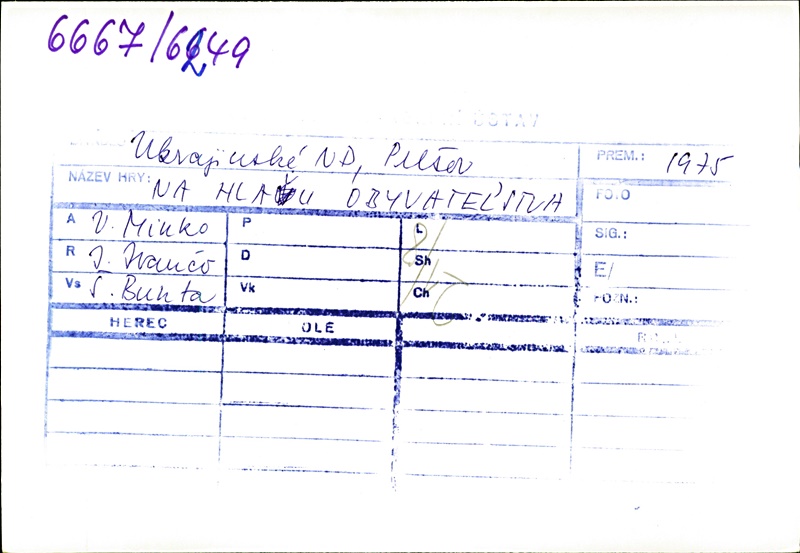 6667/6249
ÚSTAV
Ukrajinské ND, Prešov
PREM.: 1975
NÁZEV HRY: NA HLAVU OBYVATEĽSTVA
FOTO
A V. Minko P L
SIG.:
R J. Ivančo D Sh
E/
Vs Š. Bunta Vk Ch
POZN.:
HEREC OLE